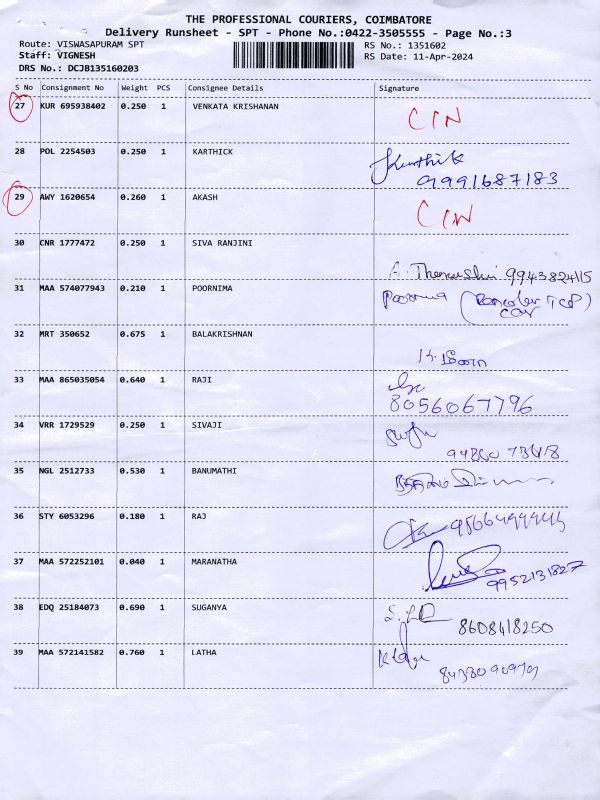 THE PROFESSIONAL COURIERS, COIMBATORE
Delivery Runsheet - SPT - Phone No.:0422-3505555 - Page No.:3
Route: VISWASAPURAM SPT RS No.: 1351602
Staff: VIGNESH RS Date: 11-Apr-2024
DRS No.: DCJB135160203
S No Consignment No Weight PCS Consignee Details Signature
27 KUR 695938402 0.250 1 VENKATA KRISHANAN CIN
28 POL 2254503 0.250 1 KARTHICK Karthik
9991687183
29 AWY 1620654 0.260 1 AKASH CIN
30 CNR 1777472 0.250 1 SIVA RANJINI
A. 9943824115
31 MAA 574077943 0.210 1 POORNIMA Poornima
32 MRT 350652 0.675 1 BALAKRISHNAN
33 MAA 865035054 0.640 1 RAJI
8056067796
34 VRR 1729529 0.250 1 SIVAJI
35 NGL 2512733 0.530 1 BANUMATHI
36 STY 6053296 0.180 1 RAJ
37 MAA 572252101 0.040 1 MARANATHA
9952131827
38 EDQ 25184073 0.690 1 SUGANYA
8608418250
39 MAA 572141582 0.760 1 LATHA